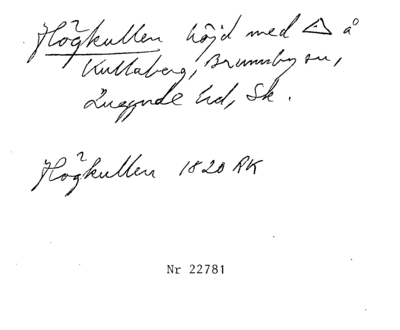 Högkullen höjd med △ å
Kullaberg, Brunnby sn,
Luggude hd, Sk.
Högkullen 1820 RK
Nr 22781